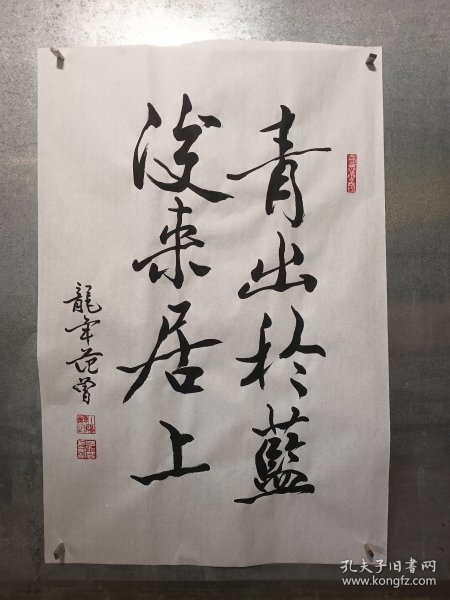 青出於藍
後来居上
龍年范曾
孔夫子旧书网
www.kongfz.com